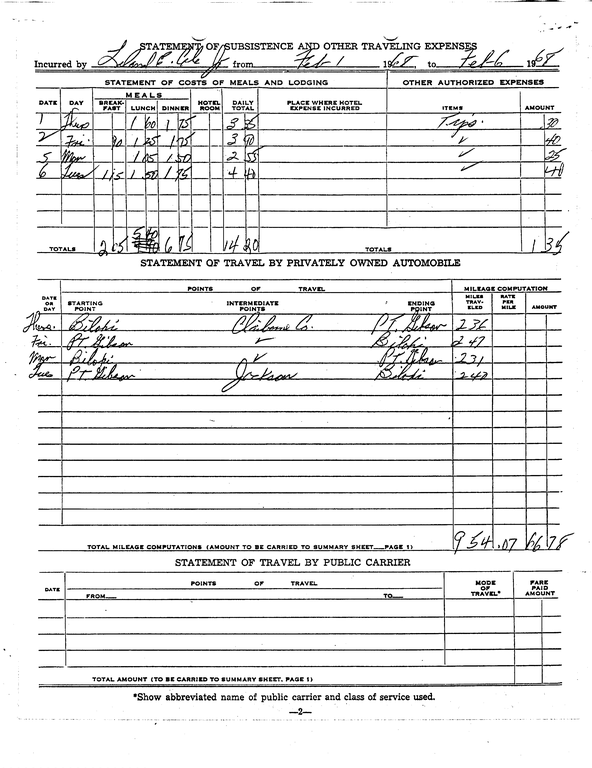 STATEMENT OF SUBSISTENCE AND OTHER TRAVELING EXPENSES
Incurred by Leland E. Cole Jr from Feb 1 1968, to Feb 6 1968
STATEMENT OF COSTS OF MEALS AND LODGING OTHER AUTHORIZED EXPENSES
MEALS
DATE DAY BREAK-FAST LUNCH DINNER HOTEL ROOM DAILY TOTAL PLACE WHERE HOTEL EXPENSE INCURRED ITEMS AMOUNT
1 Thurs 1 60 1 75 3 35 Tips. 30
2 Fri. 90 1 25 1 75 3 90 ✓ 40
5 Mon 1 05 1 50 2 55 ✓ 25
6 Tues 1 15 1 50 1 75 4 40 ✓ 40
TOTALS 2 05 5 40 6 75 14 20 TOTALS 1 35
STATEMENT OF TRAVEL BY PRIVATELY OWNED AUTOMOBILE
POINTS OF TRAVEL MILEAGE COMPUTATION
DATE OR DAY STARTING POINT INTERMEDIATE POINTS ENDING POINT MILES TRAV-ELED RATE PER MILE AMOUNT
Thurs. Biloxi Claiborne Co. PT. Gibson 236
Fri. PT. Gibson ✓ Biloxi 247
Mon Biloxi ✓ PT. Gibson 231
Tues PT. Gibson Jackson Biloxi 240
TOTAL MILEAGE COMPUTATIONS (AMOUNT TO BE CARRIED TO SUMMARY SHEET—PAGE 1) 954 .07 66 78
STATEMENT OF TRAVEL BY PUBLIC CARRIER
DATE POINTS OF TRAVEL MODE OF TRAVEL* FARE PAID AMOUNT
FROM— TO—
TOTAL AMOUNT (TO BE CARRIED TO SUMMARY SHEET, PAGE 1)
*Show abbreviated name of public carrier and class of service used.
—2—